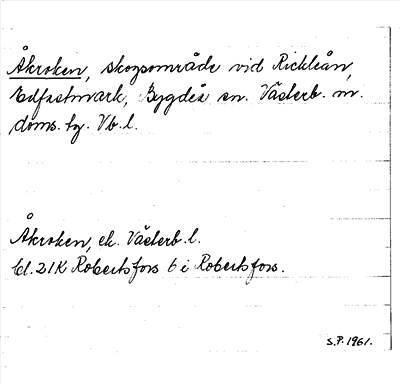 Åkroken, skogsområde vid Rickleån,
Edfastmark, Bygdeå sn. Västerb. m.
doms. tg. Vb. l.
Åkroken, ek. Västerb. l.
bl. 21K Robertsfors 6 i Robertsfors.
S.P. 1961.